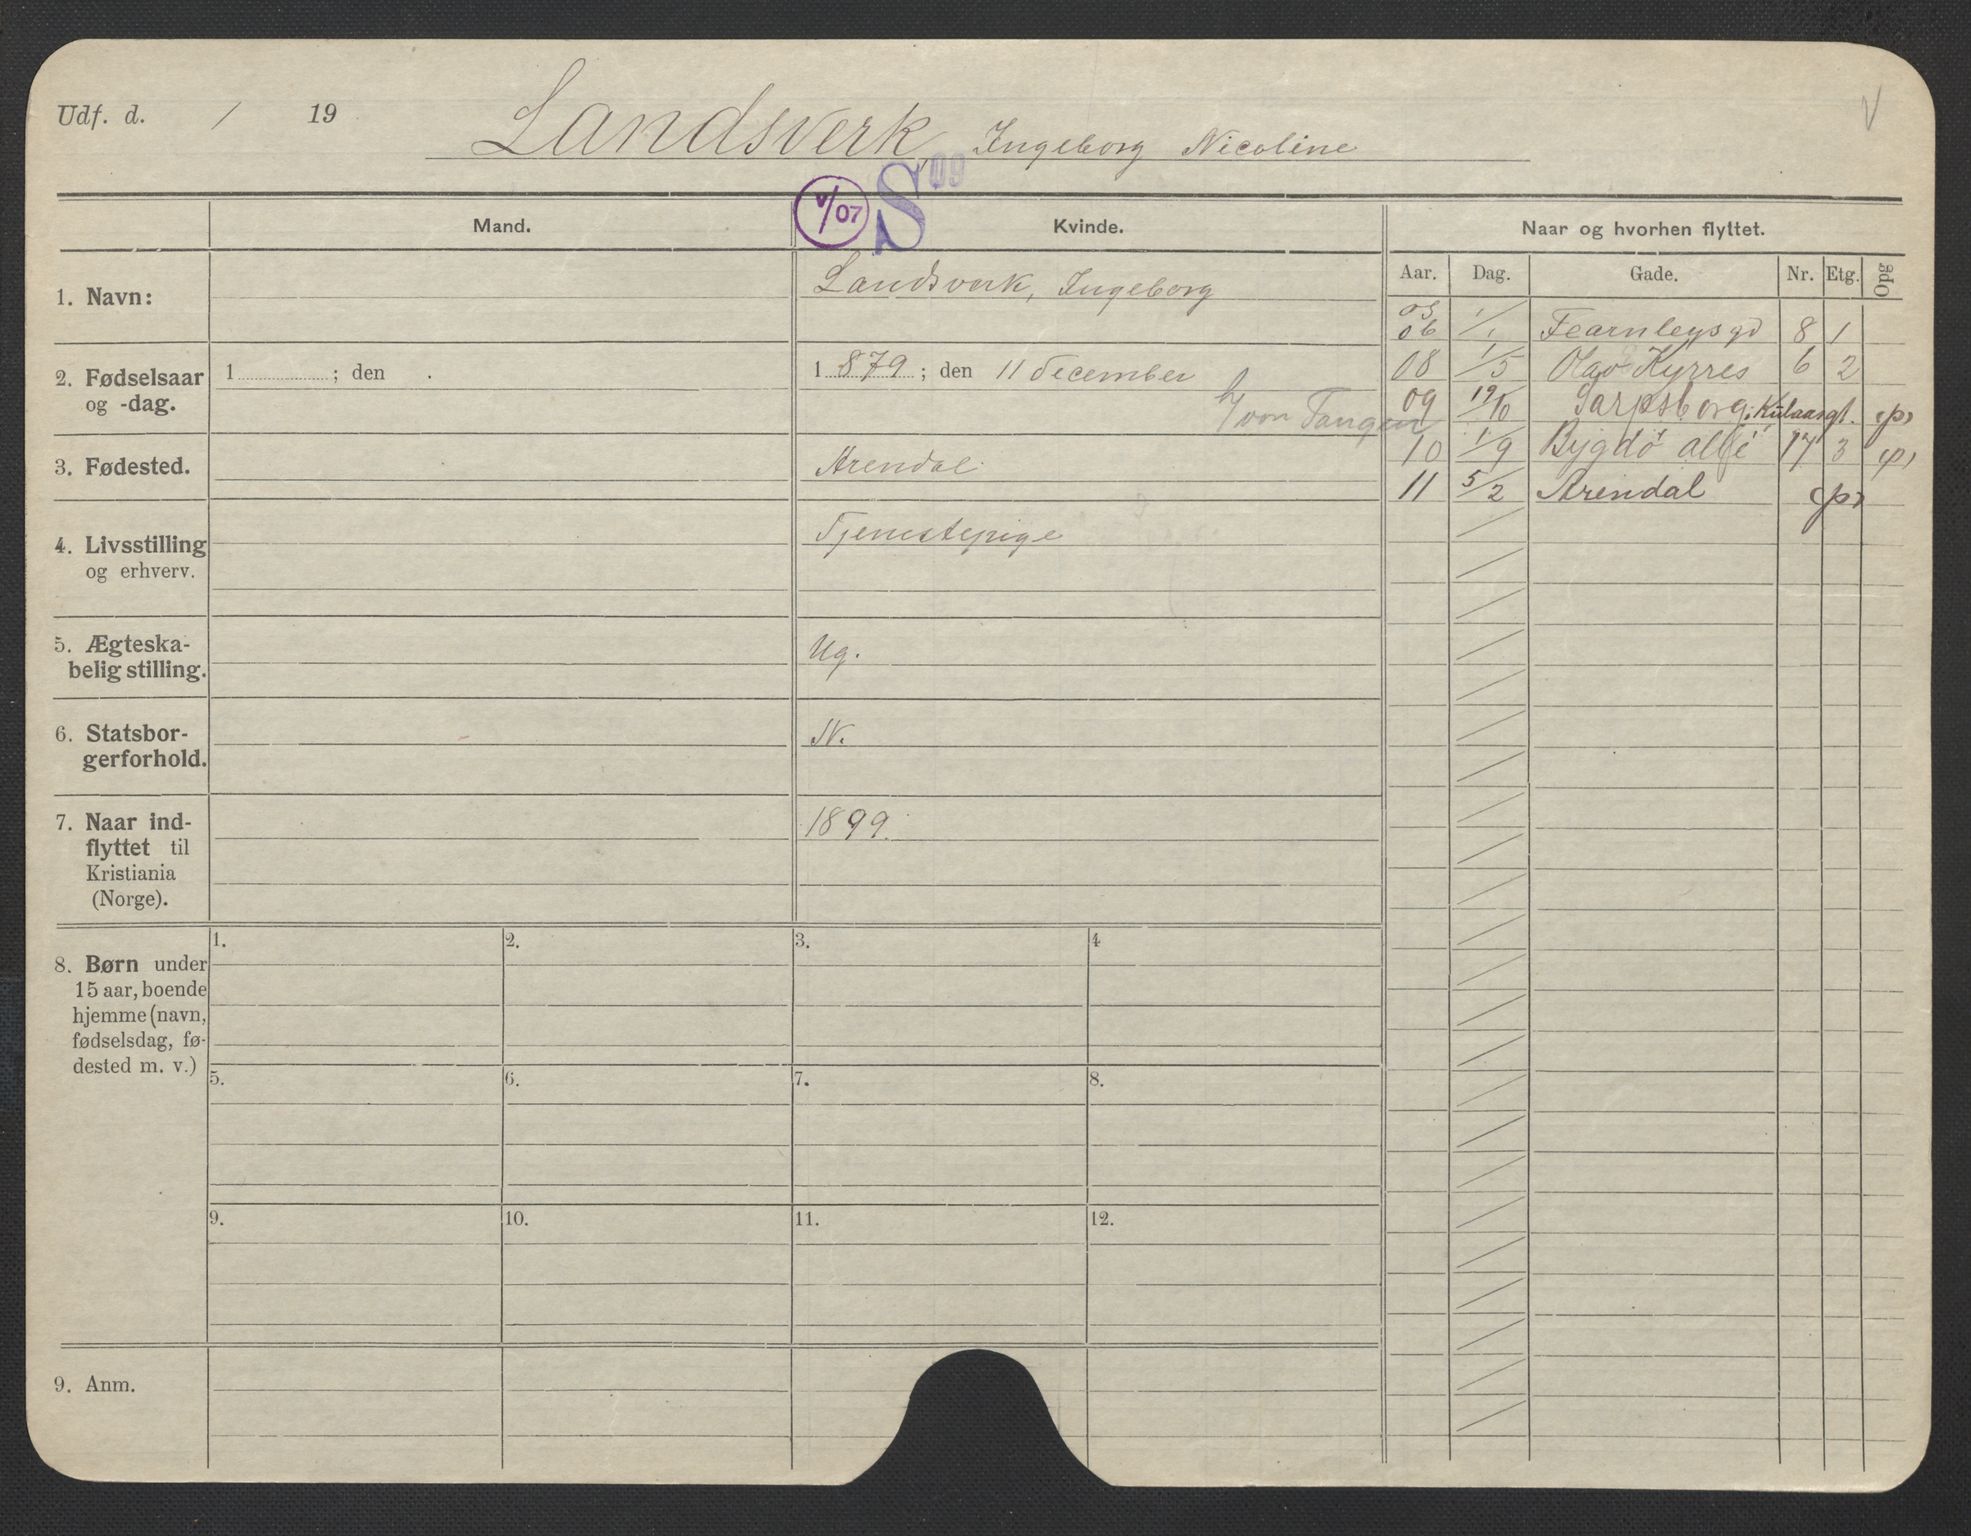 Udf. d. / 19
Landsverk, Ingeborg Nicoline
V
V/07 S 09
Mand.
Kvinde.
Naar og hvorhen flyttet.
Aar. Dag. Gade. Nr. Etg. Opg
1. Navn:
Landsverk, Ingeborg
2. Fødselsaar
og -dag.
1 ; den .
1 879 ; den 11 December
von Tangen
3. Fødested.
Arendal
4. Livsstilling
og erhverv.
Tjenestepige
5. Ægteska-
belig stilling.
Ug.
6. Statsbor-
gerforhold.
N.
7. Naar ind-
flyttet til
Kristiania
(Norge).
1899.
05
06 1/1 Fearnleysgd 8 1
08 1/5 Olav Kyrres 6 2
09 19/10 Sarpsborg; Kulaasgt. (p)
10 1/9 Bygdö allé 17 3 (p)
11 5/2 Arendal (p)
8. Børn under
15 aar, boende
hjemme (navn,
fødselsdag, fø-
dested m. v.)
1. 2. 3. 4
5. 6. 7. 8.
9. 10. 11. 12.
9. Anm.